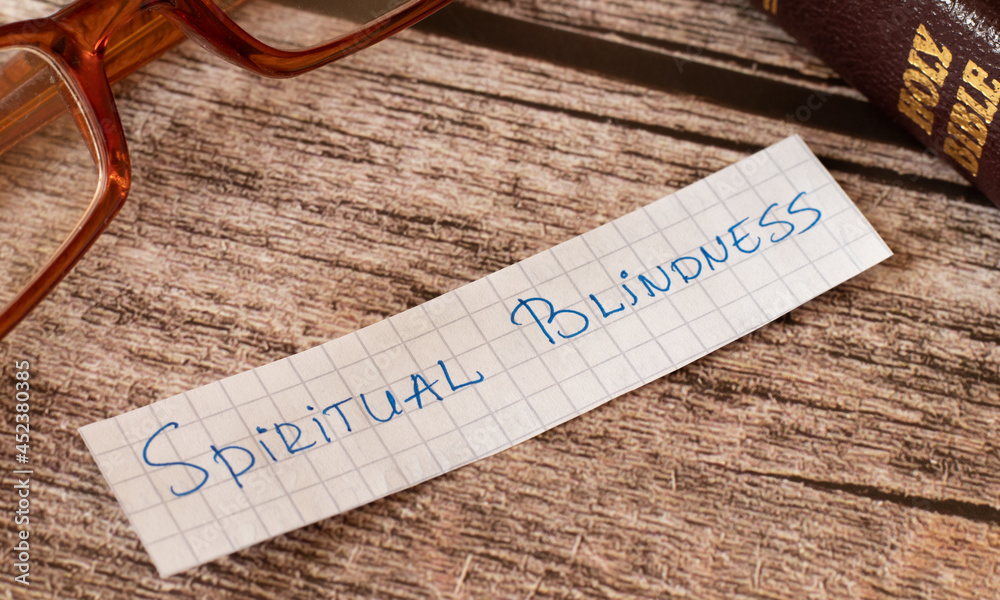 HOLY
BIBLE
SPIRITUAL BLINDNESS
Adobe Stock | #452380385